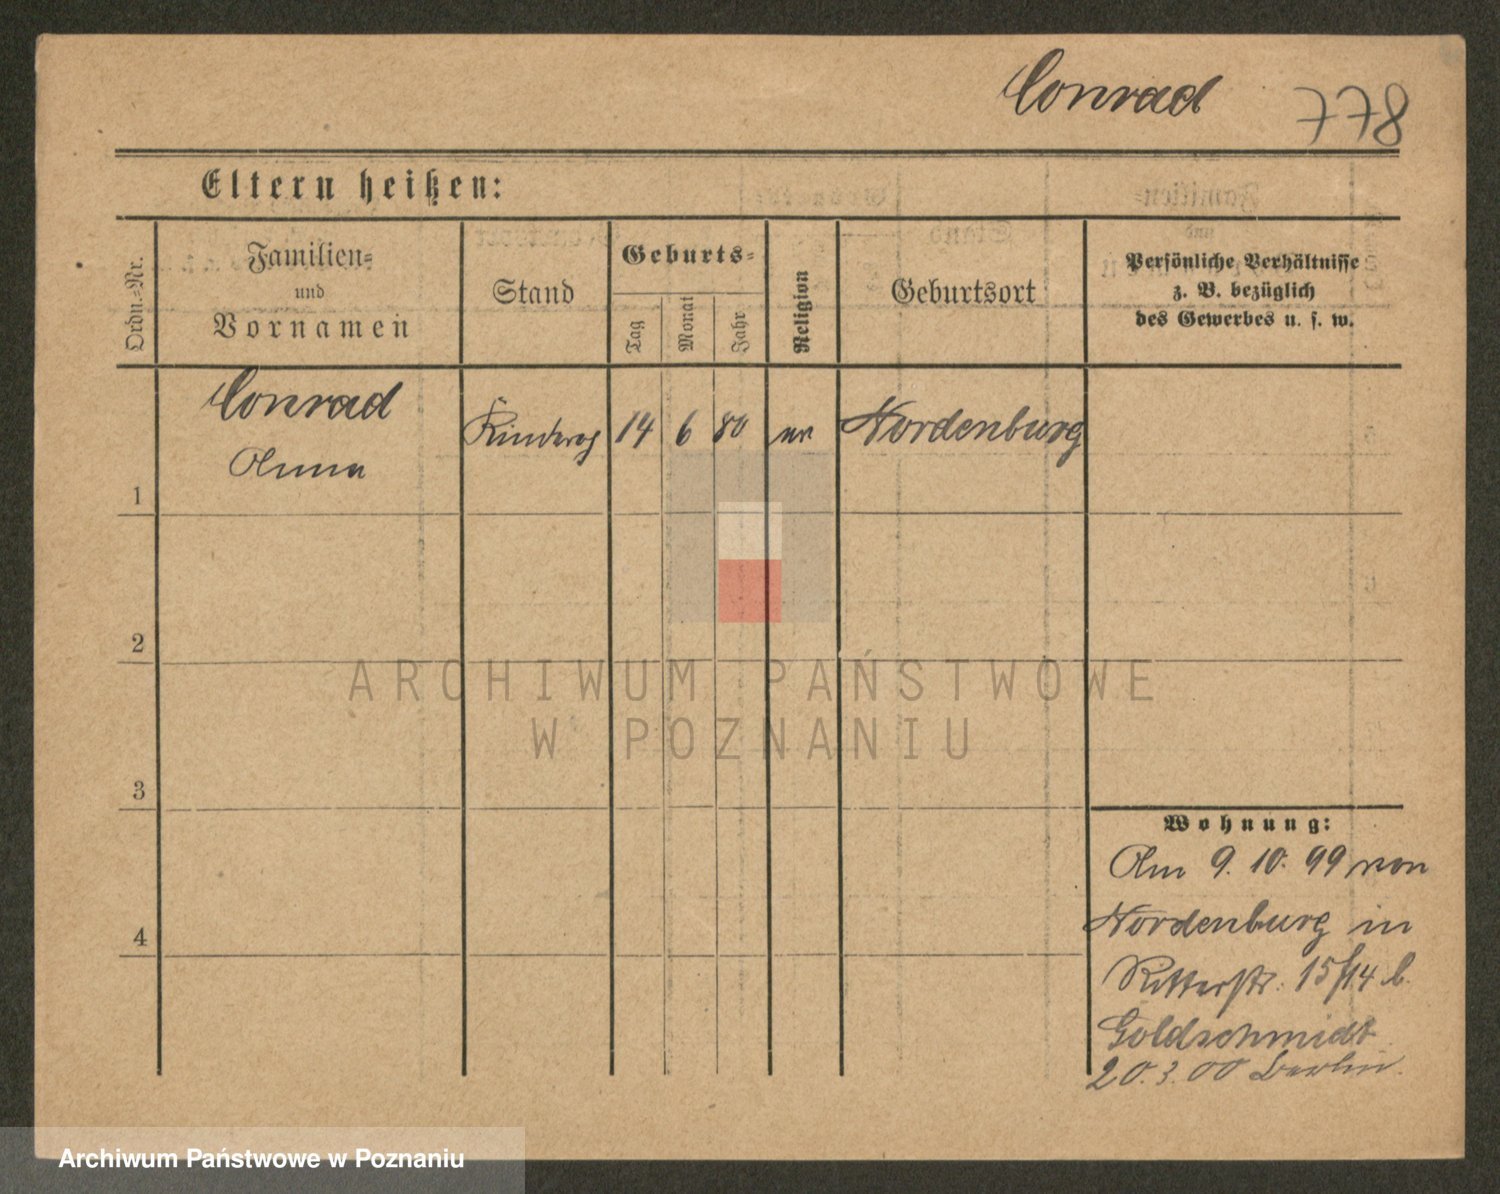 Conrad 778
Eltern heißen:
Ordn.=Nr.
Familien=
und
Vornamen
Stand
Geburts=
Tag
Monat
Jahr
Religion
Geburtsort
Persönliche Verhältnisse
z. B. bezüglich
des Gewerbes u. s. w.
Conrad
Anna
14 6 80 Nordenburg
1
2
3
4
Wohnung:
Am 9. 10. 99 von
Nordenburg in
Ritterstr. 15/14 b.
Goldschmidt
20. 3. 00 Berlin.
ARCHIWUM PAŃSTWOWE
W POZNANIU
Archiwum Państwowe w Poznaniu